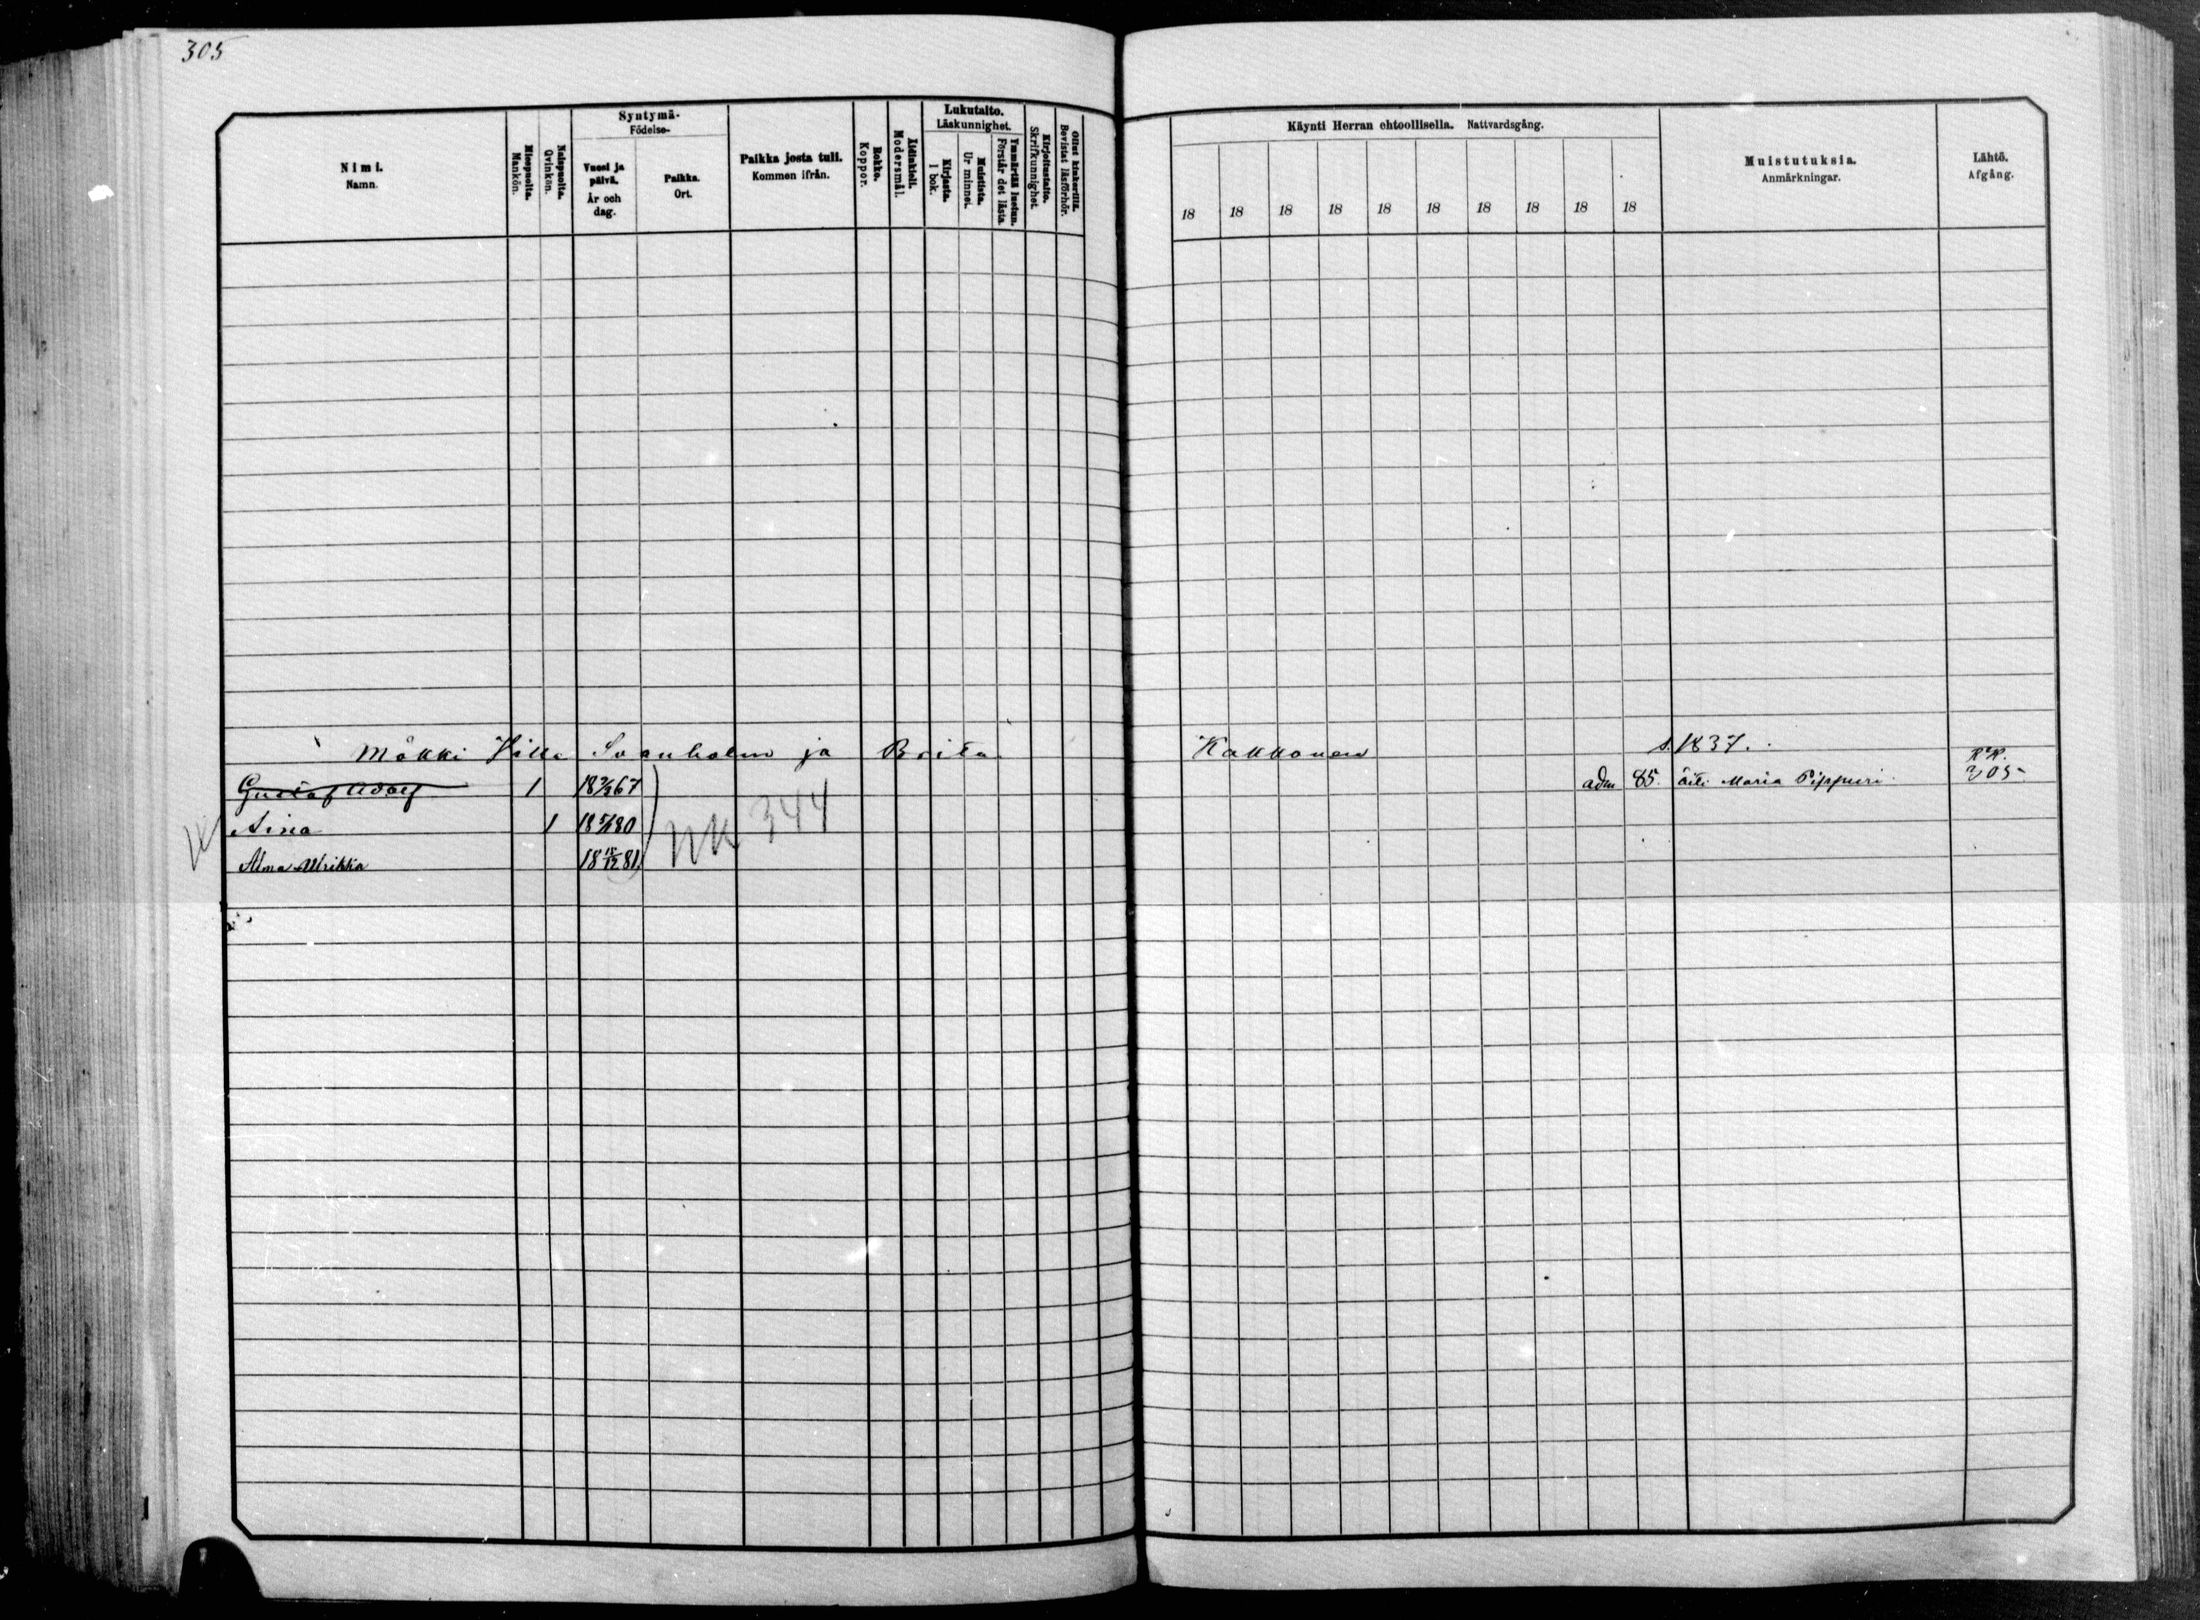 305
Nimi.
Namn.
Miespuolta.
Mankön.
Naispuolta.
Qvinkön.
Syntymä-
Födelse-
Vuosi ja päivä.
År och dag.
Paikka.
Ort.
Paikka josta tuli.
Kommen ifrån.
Rokko.
Koppor.
Äidinkieli.
Modersmål.
Lukutaito.
Läskunnighet.
Kirjasta.
I bok.
Muistista.
Ur minnet.
Ymmärtää luetun.
Förstår det lästa.
Kirjoitustaito.
Skrifkunnighet.
Ollut kinkerillä.
Bevistat läsförhör.
Käynti Herran ehtoollisella. Nattvardsgång.
18 18 18 18 18 18 18 18 18 18
Muistutuksia.
Anmärkningar.
Lähtö.
Afgång.
Mökki Ville Svanholm ja Brita Kakkonen s. 1837.
Gustaf Adolf 1 67 adm 85. äiti Maria Pippuri R.K. 305
Aina 1 80
NK 344
Alma Ulrikka 18 18/12 81